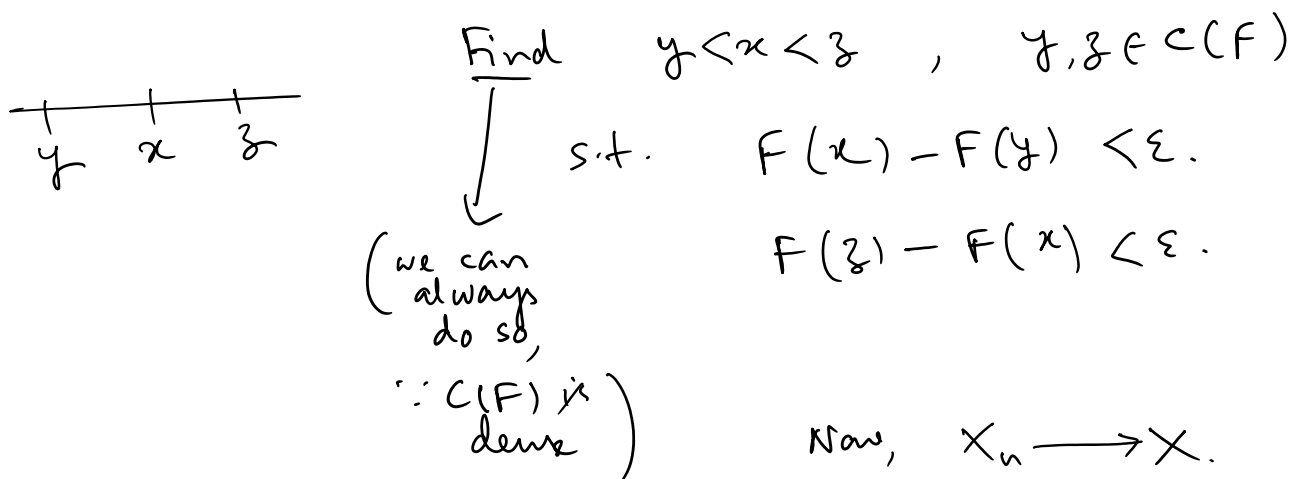 Find y < x < z , y, z ∈ C(F)
y x z
s.t. F(x) - F(y) < ε.
F(z) - F(x) < ε.
(we can
always
do so,
∵ C(F) is
dense)
Now, Xn ⟶ X.